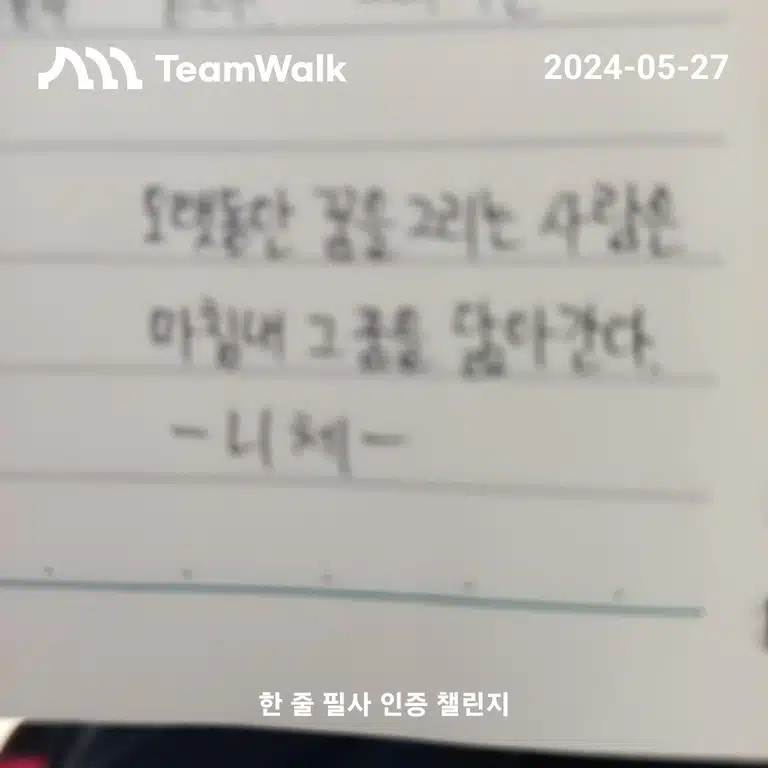 TeamWalk
2024-05-27
오랫동안 꿈을 그리는 사람은
마침내 그 꿈을 닮아간다.
-니체-
한 줄 필사 인증 챌린지